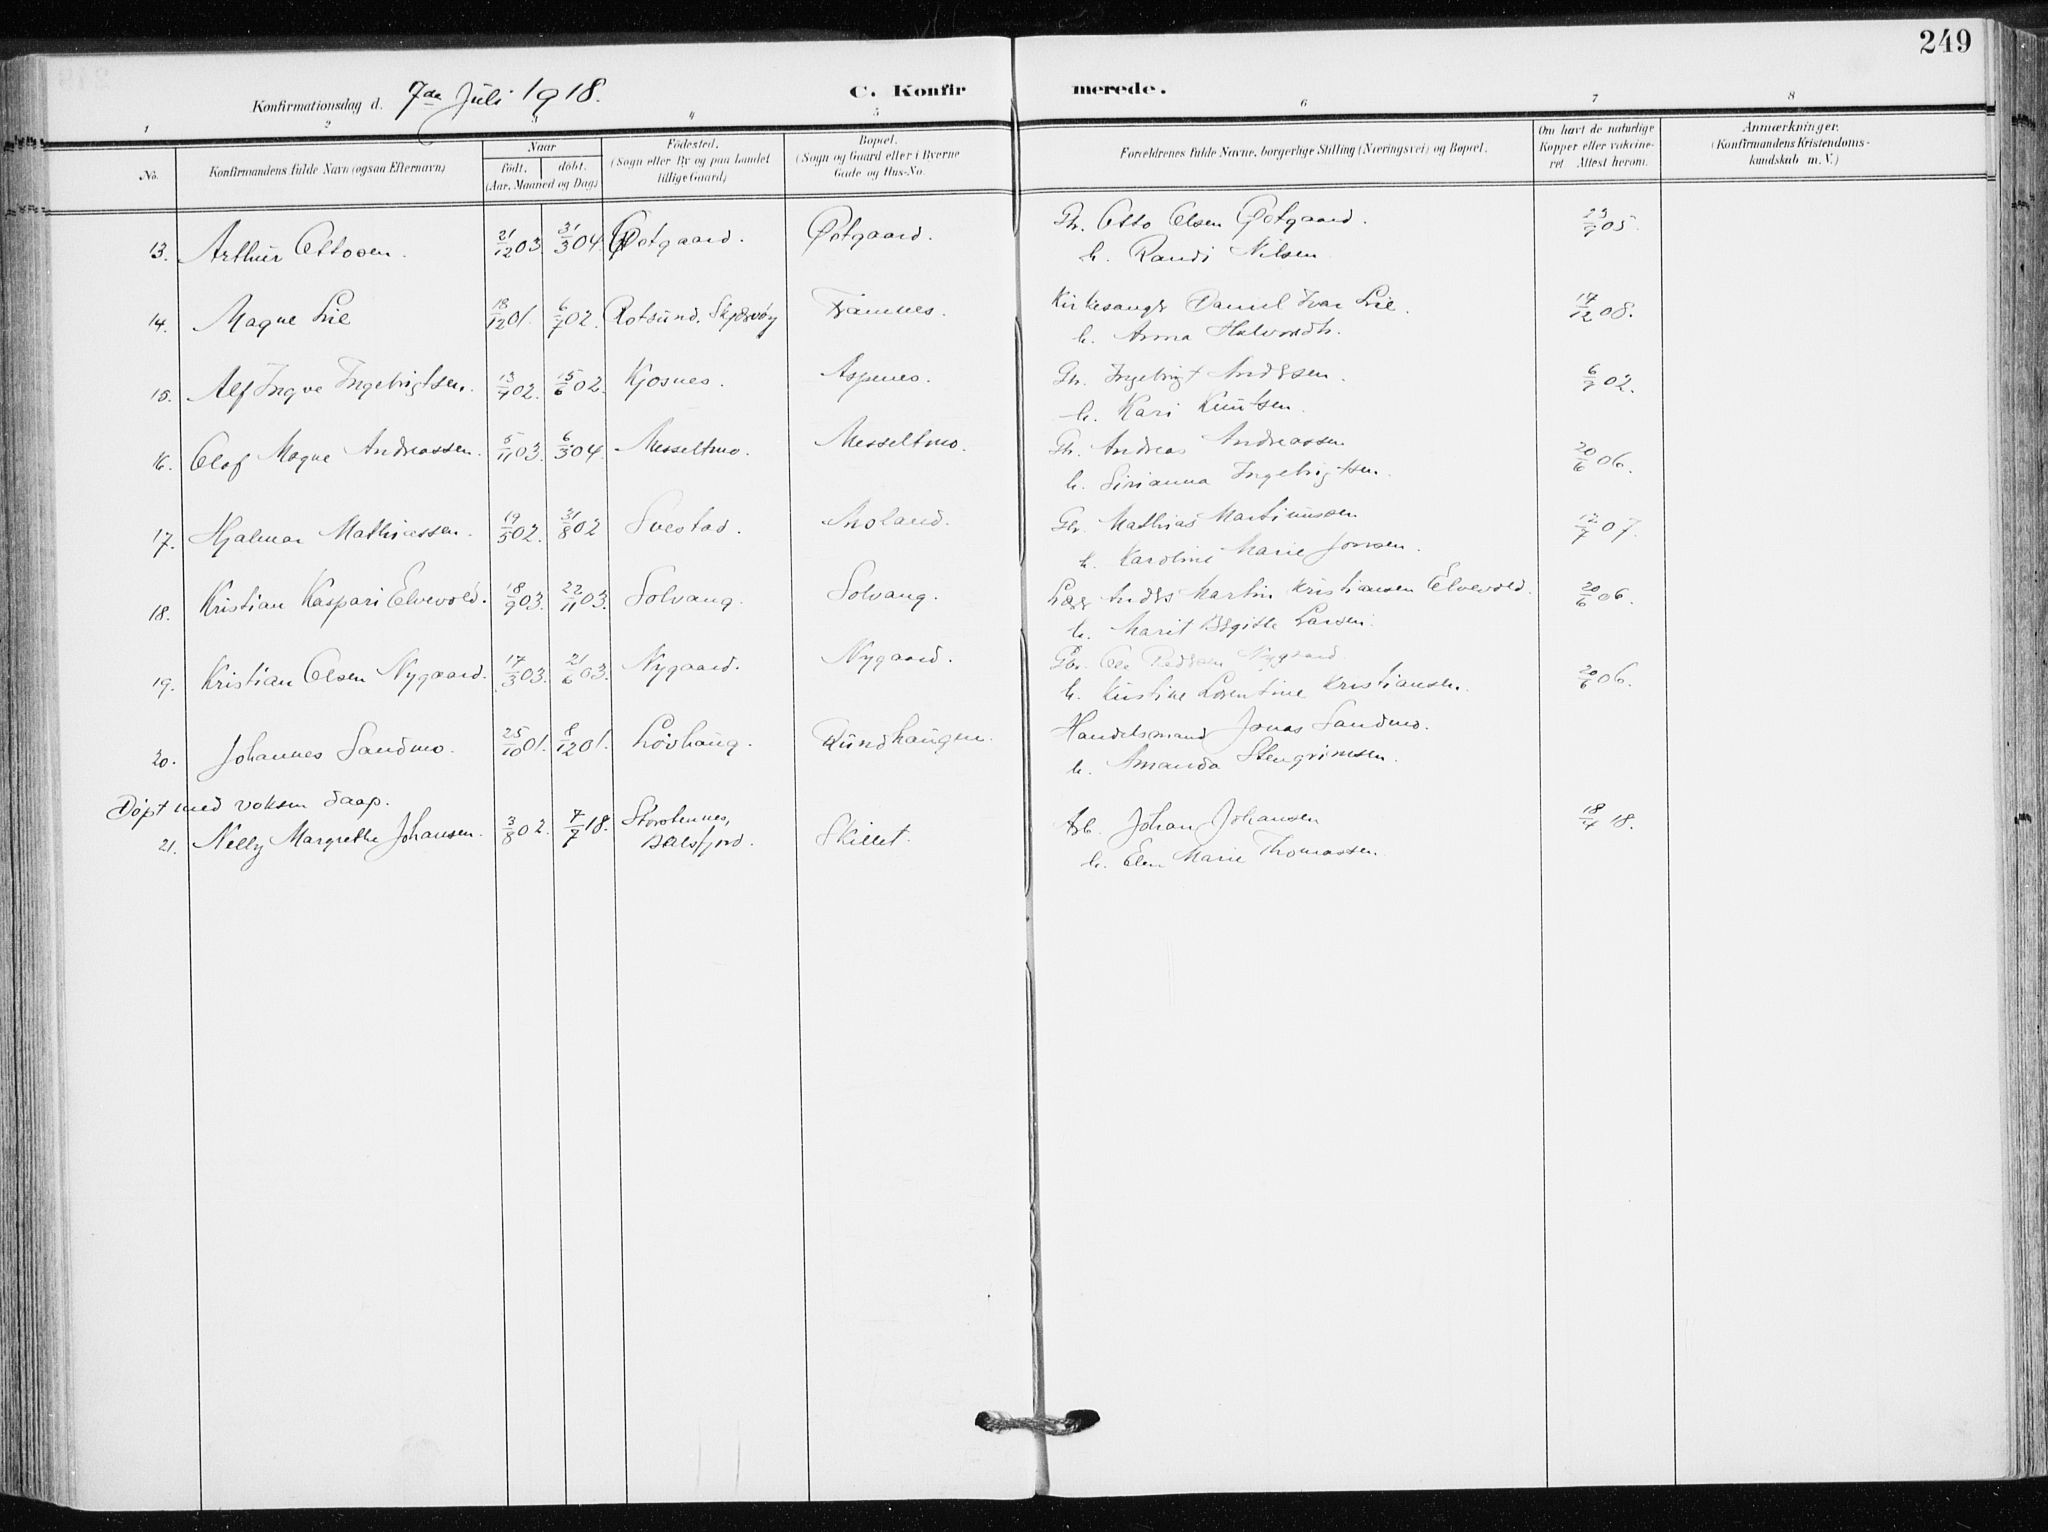 249
Konfirmationsdag d. 7de Juli 1918.
C. Konfirmerede.
1 2 3 4 5 6 7 8
No.
Konfirmandens fulde Navn (ogsaa Efternavn)
Naar
født. døbt.
(Aar, Maaned og Dag)
Fødested.
(Sogn eller By og paa Landet
tillige Gaard)
Bopæl.
(Sogn og Gaard eller i Byerne
Gade og Hus-No.
Forældrenes fulde Navne, borgerlige Stilling (Næringsvei) og Bopæl.
Om havt de naturlige
Kopper eller vakcine-
ret. Attest herom.
Anmærkninger.
(Konfirmandens Kristendoms-
kundskab m. V.)
13. Arthur Ottosen. 21/12 03. 31/3 04. Østgaard. Østgaard. Gb. Otto Olsen Østgaard. 23/9 05.
h. Randi Nilsen
14. Magne Lie 18/12 01. 6/7 02. Rotsund, Skjervøy Framnes. Kirkesanger Daniel Ivar Lie. 17/12 08.
h. Anna Halvorsdtr.
15. Alf Ingve Ingebrigtsen. 13/4 02. 15/6 02. Kjosnes. Aspenes. Gb. Ingebrigt Andersen. 6/9 02.
h. Kari Knutsen.
16. Olaf Magne Andreassen. 5/11 03. 6/3 04. Messeltmo. Messeltmo. Gb. Andreas Andreassen 20/6 06.
h. Sirianna Ingebrigtsen.
17. Hjalmar Mathiassen. 19/5 02. 31/8 02 Svestad. Moland. Gbr. Mathias Martinussen 12/7 07.
h. Karoline Marie Jonsen.
18. Kristian Kaspari Elvevold. 18/9 03. 22/11 03. Solvang. Solvang. Lærer Anders Martin Kristiansen Elvevold. 20/6 06.
h. Marit Birgitte Larsen.
19. Kristian Olsen Nygaard. 17/3 03. 21/6 03. Nygaard. Nygaard. Gbr. Ole Pedersen Nygaard 20/6 06.
h. Kirstine Lorentine Kristiansen.
20. Johannes Sandmo. 25/10 01. 8/12 01. Løvhaug. Rundhaugen. Handelsmand Jonas Sandmo.
h. Amanda Stengrimsen.
Døpt med voksen daap.
21. Nelly Margrethe Johansen. 3/8 02. 7/7 18. Storstennes, Balsfjord. Skillet. Arb. Johan Johansen 18/4 18.
h. Elen Marie Thomassen.